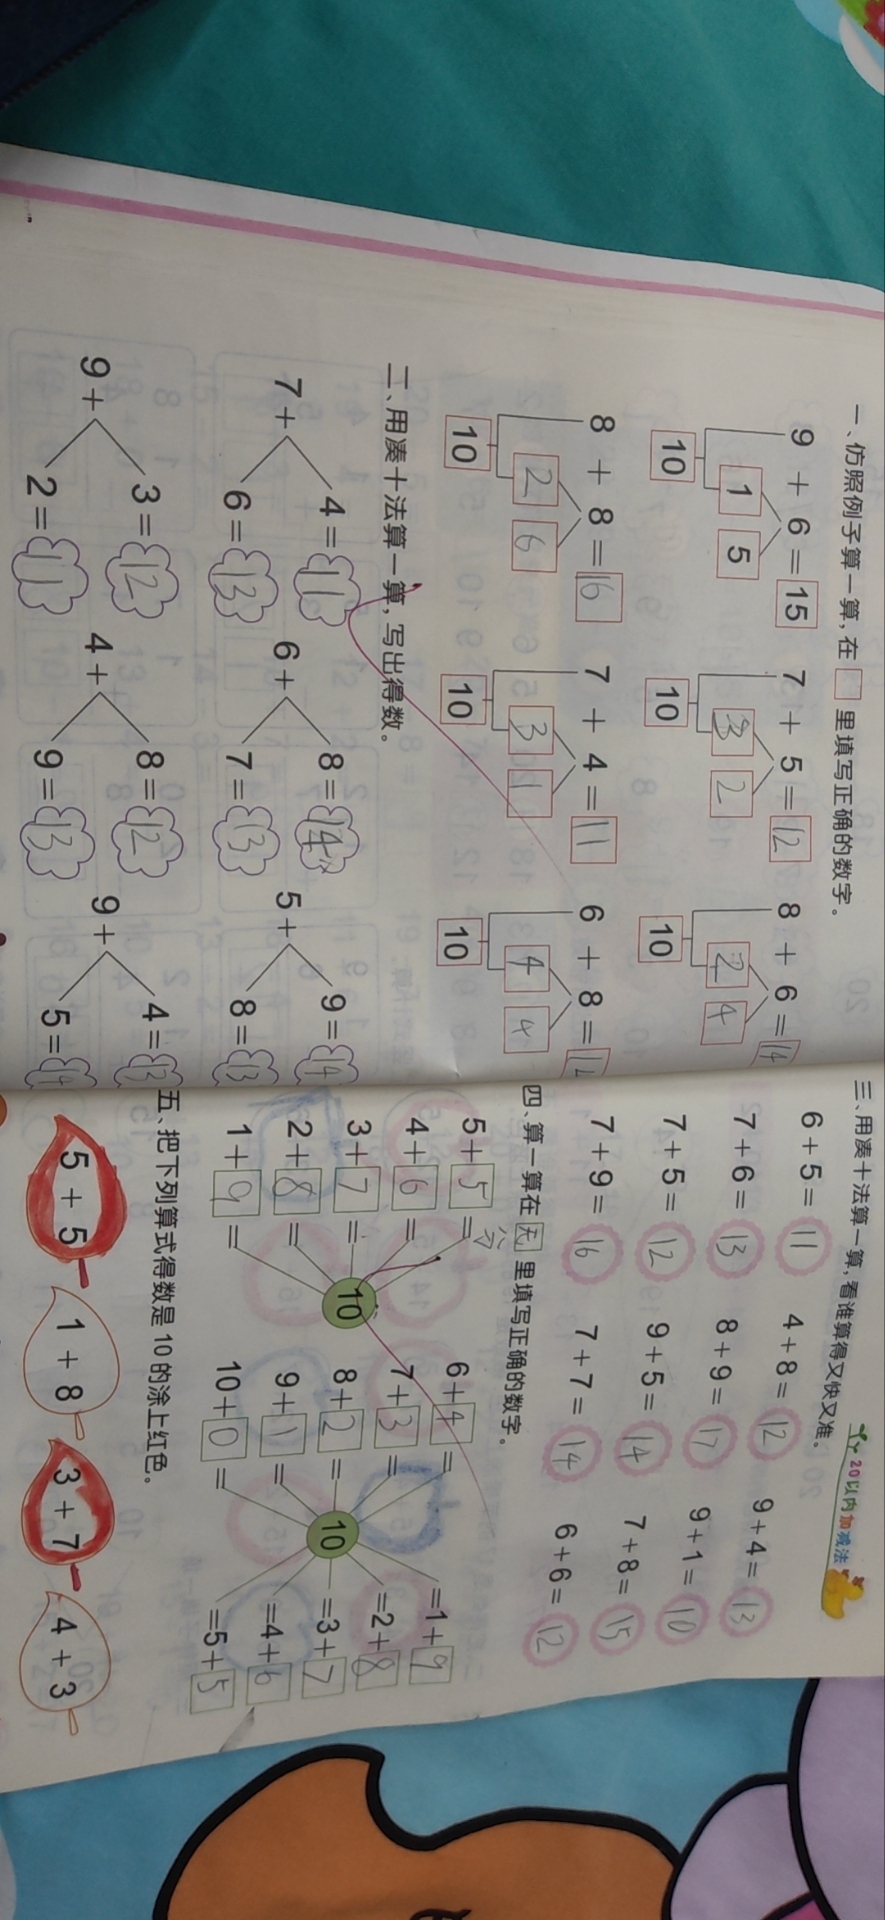 一、仿照例子算一算，在□里填写正确的数字。
9 + 6 = 15
1 5
10
7 + 5 = 12
3 2
10
8 + 6 = 14
2 4
10
8 + 8 = 16
2 6
10
7 + 4 = 11
3 1
10
6 + 8 = 14
4 4
10
二、用凑十法算一算，写出得数。
7 +
4 = 11
6 = 13
6 +
8 = 14
7 = 13
5 +
9 = 14
8 = 13
9 +
3 = 12
2 = 11
4 +
8 = 12
9 = 13
9 +
4 = 13
5 = 14
20以内加减法
三、用凑十法算一算，看谁算得又快又准。
6 + 5 = 11 4 + 8 = 12 9 + 4 = 13
7 + 6 = 13 8 + 9 = 17 9 + 1 = 10
7 + 5 = 12 9 + 5 = 14 7 + 8 = 15
7 + 9 = 16 7 + 7 = 14 6 + 6 = 12
四、算一算在□里填写正确的数字。
5 + 5 =
4 + 6 =
3 + 7 =
2 + 8 =
1 + 9 =
10
6 + 4 =
7 + 3 =
8 + 2 =
9 + 1 =
10 + 0 =
10
= 1 + 9
= 2 + 8
= 3 + 7
= 4 + 6
= 5 + 5
五、把下列算式得数是10的涂上红色。
5 + 5 1 + 8 3 + 7 4 + 3